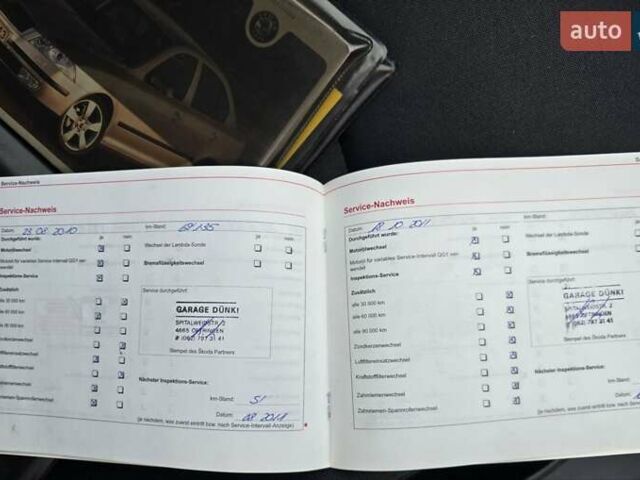 auto
Service-Nachweis
Service-Nachweis
Datum: 23 08 2010
km-Stand: 69'135
Durchgeführt wurde: ja nein
ja nein
Motorölwechsel
Wechsel der Lambda-Sonde
Motoröl für variables Service-Intervall QG1 verwendet
Bremsflüssigkeitswechsel
Inspektions-Service
Zusätzlich
alle 30 000 km
alle 60 000 km
Service durchgeführt:
GARAGE DÜNKI
SPITALWEIDSTR. 2
4665 OFTRINGEN
(062) 797 31 41
Stempel des Škoda Partners
Nächster Inspektions-Service:
km-Stand:
Datum: 08 2011
(je nachdem, was zuerst eintritt bzw. nach Service-Intervall-Anzeige)
Service-Nachweis
Datum: 18 10 2011
km-Stand:
Durchgeführt wurde: ja nein
Motorölwechsel
Wechsel der Lambda-Sonde
Motoröl für variables Service-Intervall QG1 verwendet
Bremsflüssigkeitswechsel
Inspektions-Service
Zusätzlich
alle 30 000 km
alle 60 000 km
alle 90 000 km
Zündkerzenwechsel
Luftfiltereinsatzwechsel
Kraftstofffilterwechsel
Zahnriemenwechsel
Zahnriemen-Spannrollenwechsel
Service durchgeführt:
GARAGE DÜNKI
SPITALWEIDSTR. 2
4665 OFTRINGEN
(062) 797 31 41
Stempel des Škoda Partners
Nächster Inspektions-Service:
km-Stand:
Datum:
(je nachdem, was zuerst eintritt bzw. nach Service-Inter